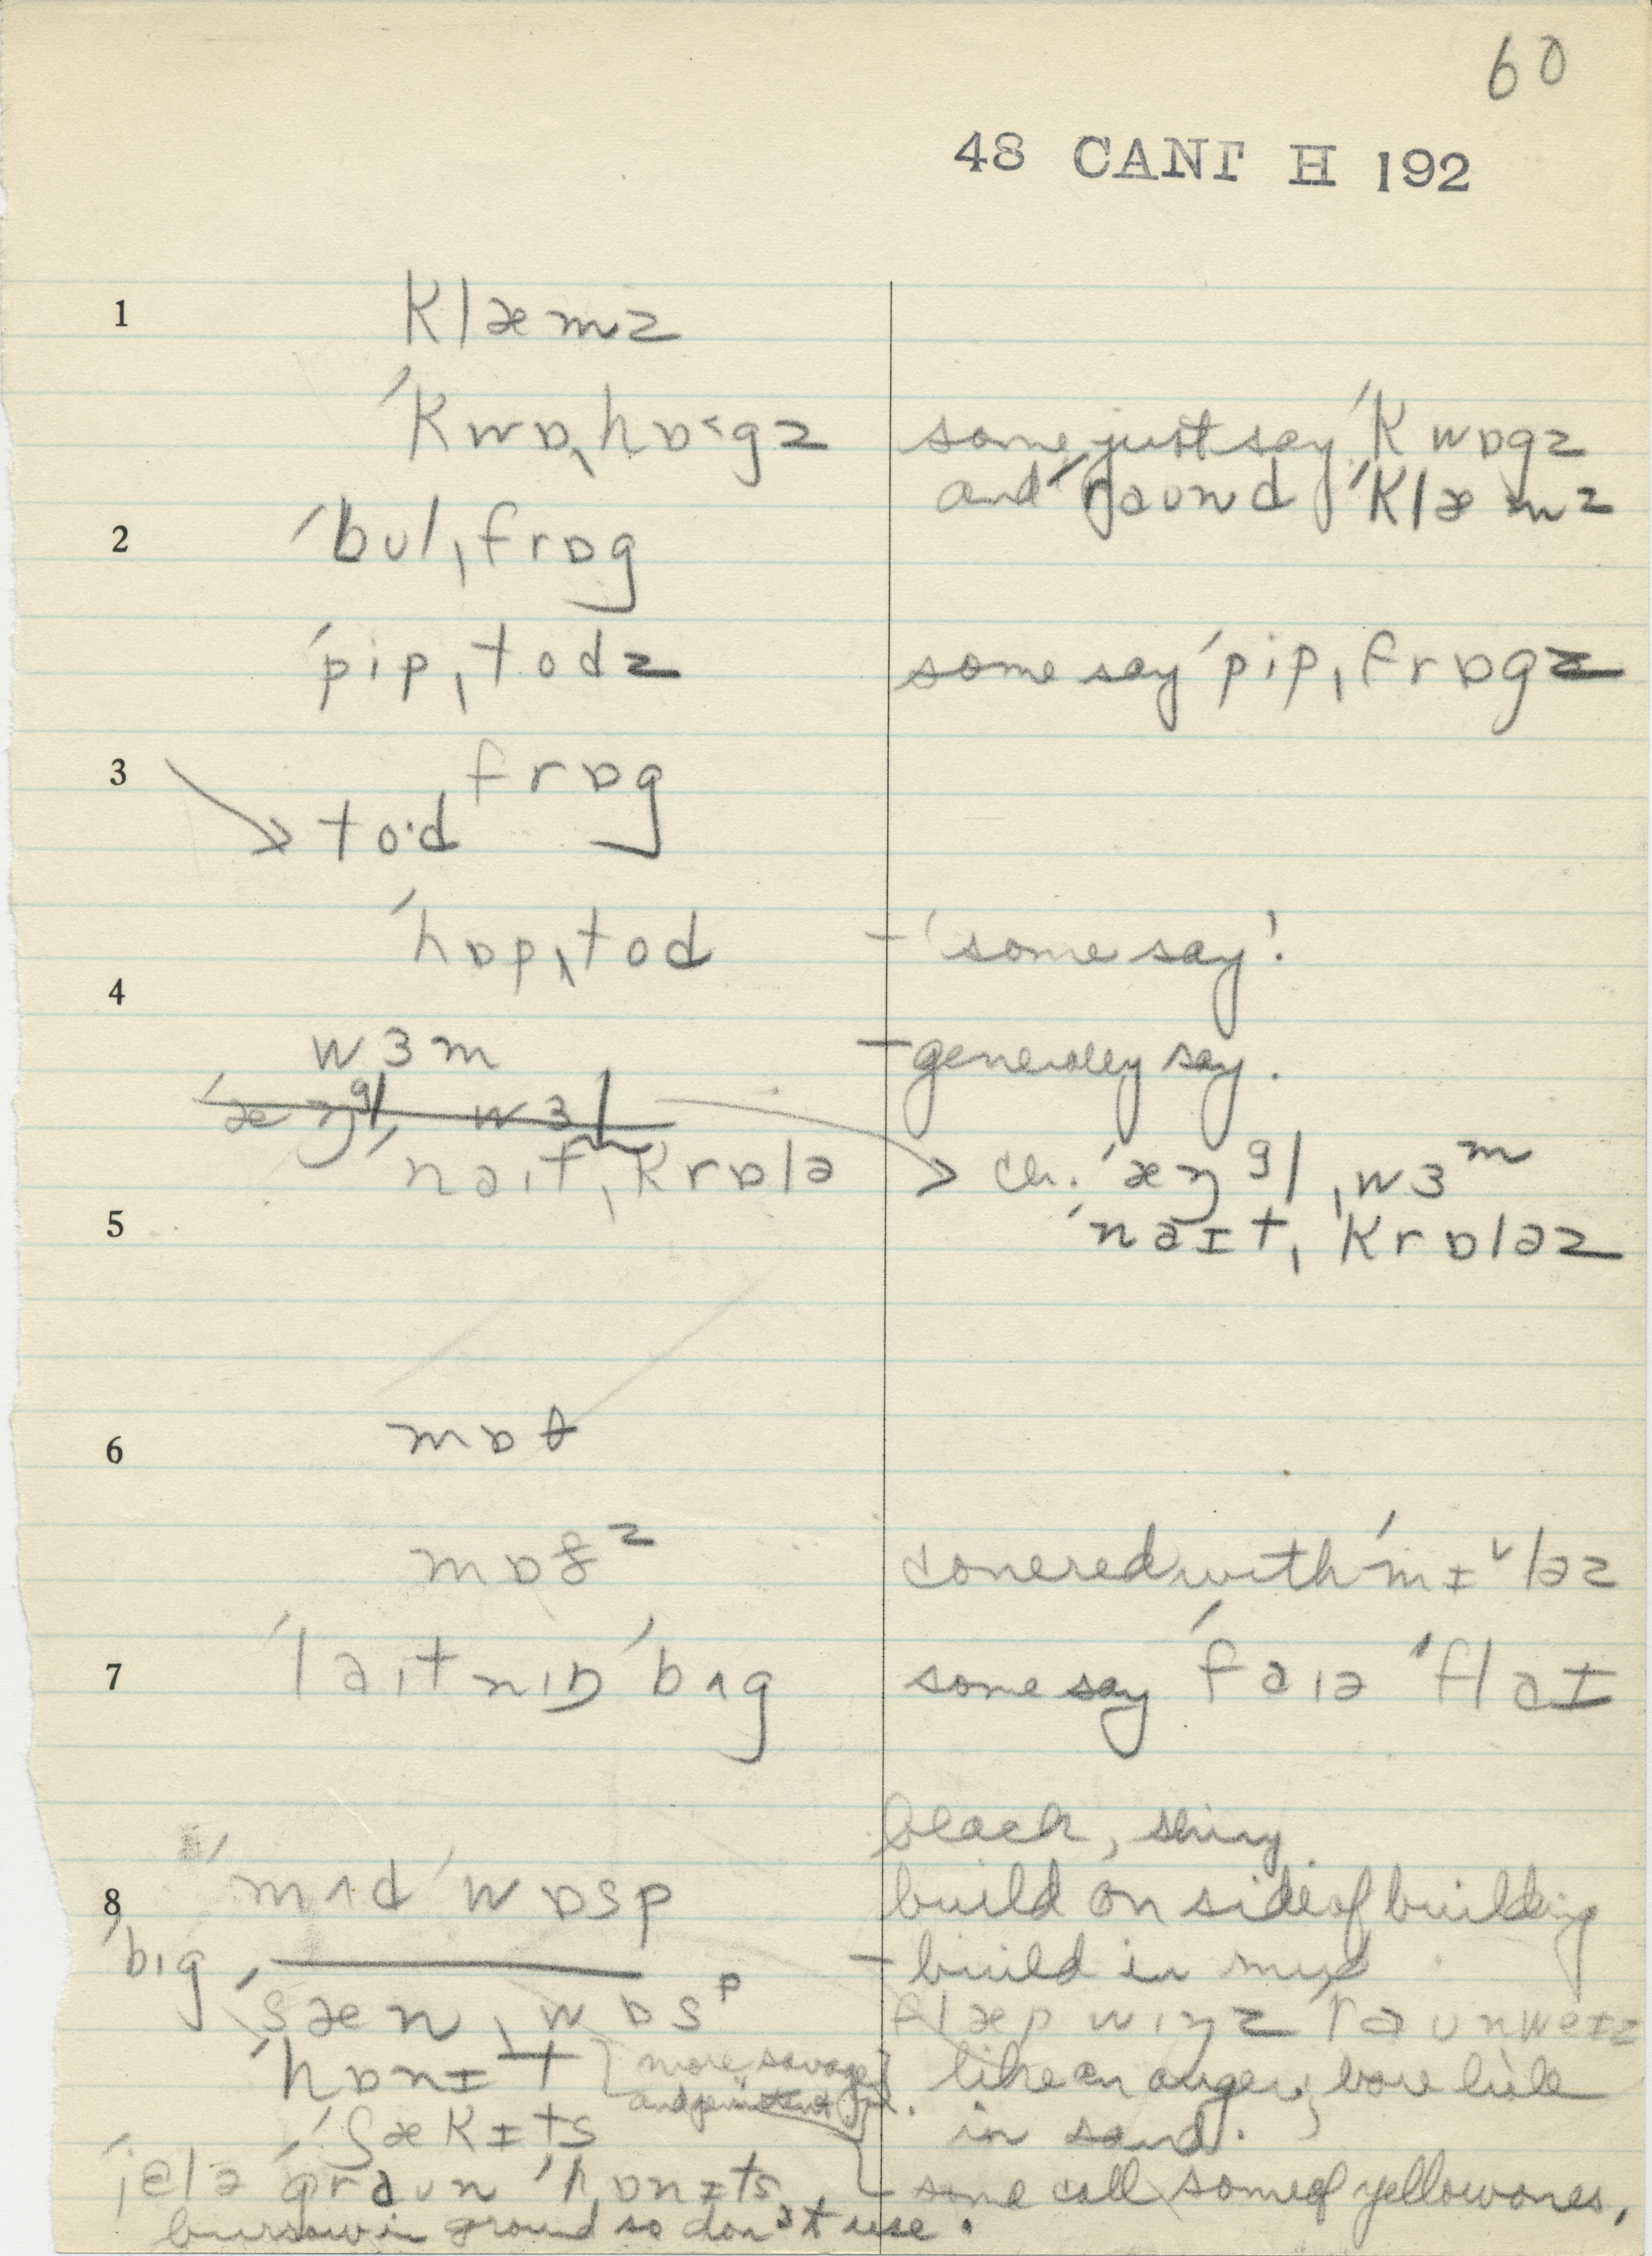 60
48 CANT H 192
1 klæmz
ˈkwɒˌhɒ˂gz some just say ˈkwɒgz
and ˈraund ˈklæmz
2 ˈbulˌfrɒg
ˈpipˌtodz some say ˈpipˌfrɒgz
3 frɒg
→ to·d
ˈhɒpˌtod – 'some say'.
4
wɜm – generally say.
ˈæŋgl wɜm
ˈnaitˌkrɒlə → ch. ˈæŋglˌwɜm
5 ˈnaɪtˌkrɒləz
6 mɒθ
mɒðz covered with ˈmɪ ləz
7 ˈlaitnɪŋ ˈbʌg some say ˈfaiə ˈflaɪ
black, shiny
8 ˈmʌd ˈwɒsp build on side of building
ˈbɪg – build in mud
ˈsænˌwɒsp flæp wɪŋz ˈraun
ˈhɒnɪt [more savage] like an auger; bore hole
in sand.
ˈjɛlə ˈgraun ˈhɒnɪts some call some of yellow ones,
burrow in ground so don't use.